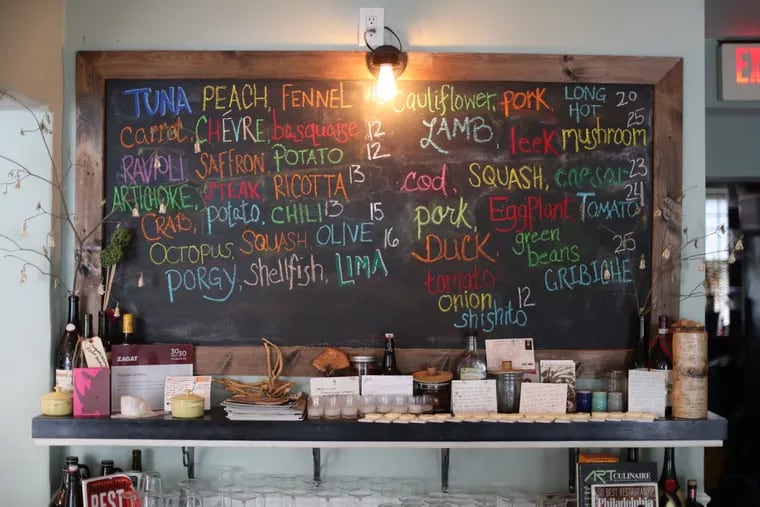 TUNA PEACH, FENNEL
carrot, CHÉVRE basquaise 12
RAVIOLI SAFFRON POTATO 12
ARTICHOKE, STEAK, RICOTTA 13
CRAB, potato, CHILI 13
OCTOPUS, SQUASH, OLIVE 15
PORGY, shellfish, LIMA 16
cauliflower, pork, LONG HOT 20
LAMB, leek, mushroom 25
cod, SQUASH, caesar 23
pork, EggPlant, TOMATO 24
DUCK green beans GRIBICHE 25
tomato
onion
shishito 12
EX
ZAGAT
30
30
BEST
ART CULINAIRE
50 BEST RESTAURANTS
Philadelphia